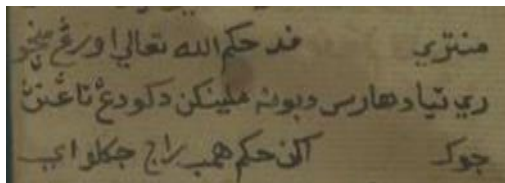 منتري فد حكم الله تعالى اورڠ يڠ منچو
ري تياد هارس دبونه ملينكن دكودڠ تاڠنڽ
جوك اكن حكم همب راج جكلو اي